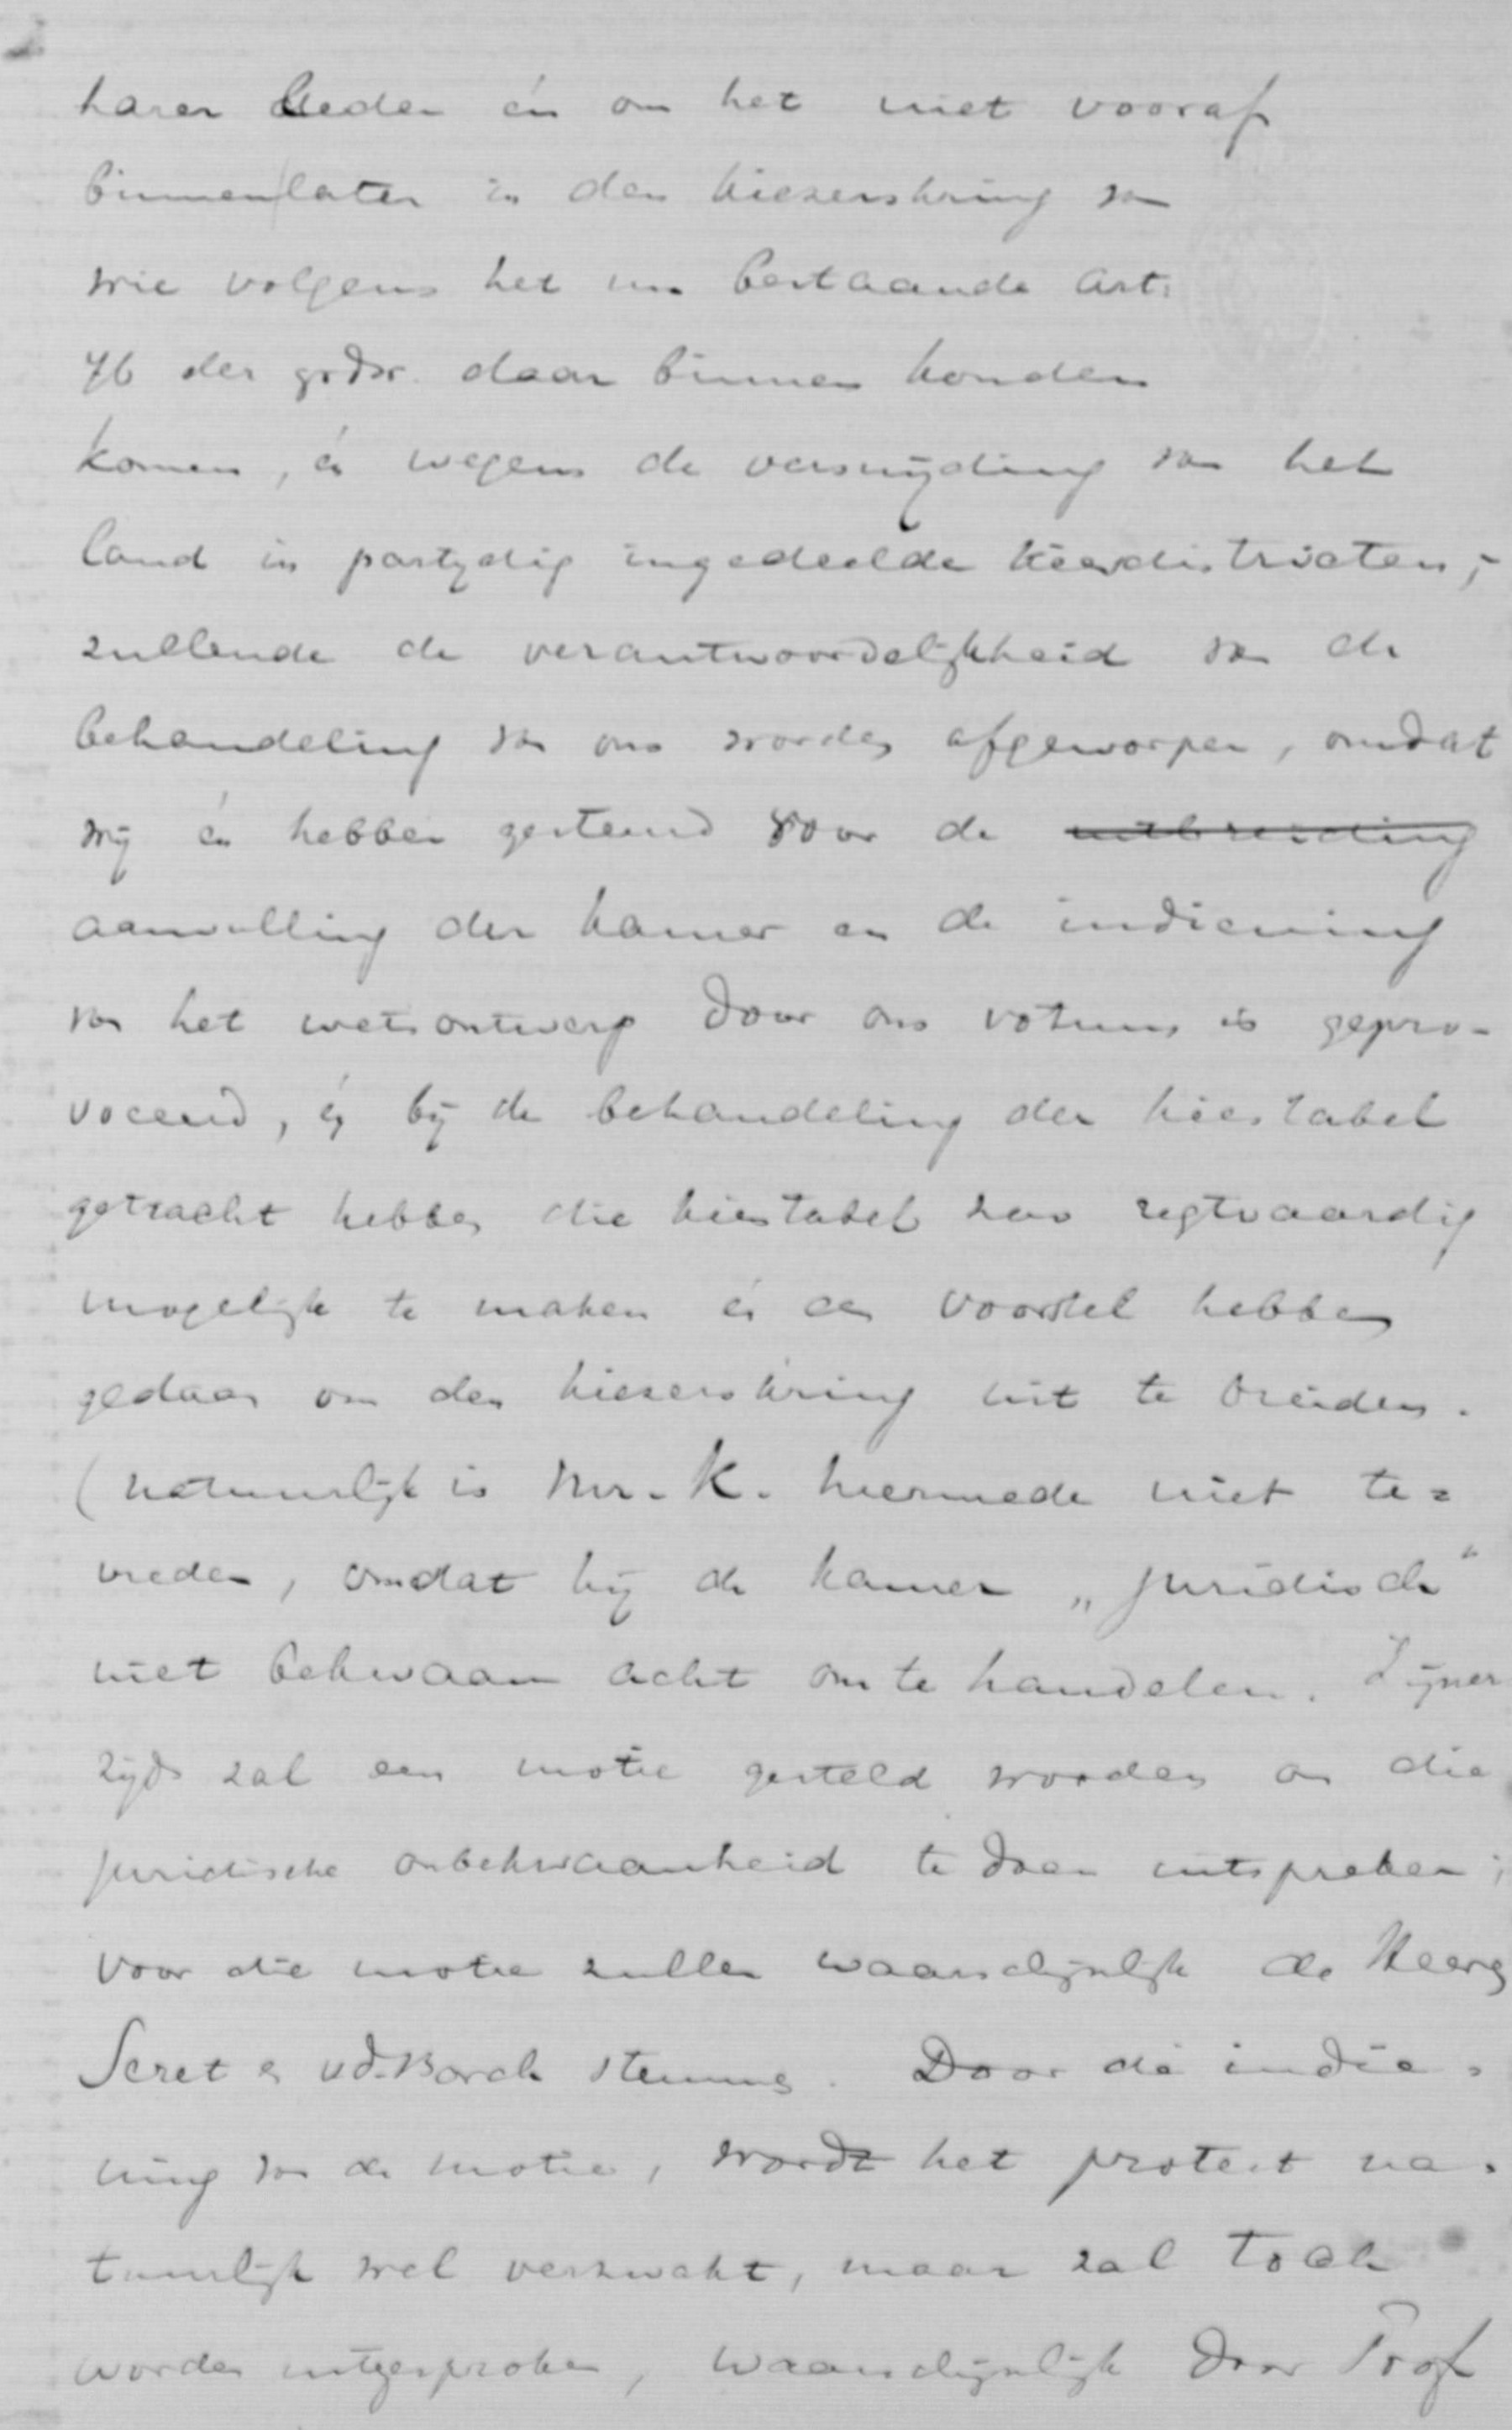 harer leden én om het niet vooraf
binnenlaten in den kiezerskring van
wie volgens het nu bestaande Art.
76 der grdw. daar binnen konden
komen, én wegens de versnijding van het
land in partijdig ingedeelde kiesdistricten; -
zullende de verantwoordelijkheid van de
behandeling van ons worden afgeworpen, omdat
wij én hebben gestemd voor de ~~uitbreiding~~
aanvulling der kamer en de indiening
van het wetsontwerp door ons votum is gepro-
voceerd, én bij de behandeling der kiestabel
getracht hebben die kiestabel zoo regtvaardig
mogelijk te maken én een voorstel hebben
gedaan om den kiezerskring uit te breiden.
(natuurlijk is Mr. K. hiermede niet te=
vreden, omdat hij de kamer „juridisch"
niet bekwaam acht om te handelen. Zijner
zijds zal een motie gesteld worden om die
juridische onbekwaamheid te doen uitspreken;
voor die motie zullen waarschijnlijk de Heeren
Seret en vd. Borch stemmen. Door de indie-
ning van de motie, wordt het protest na-
tuurlijk wel verzwakt, maar zal toch
worden uitgesproken, waarschijnlijk door Prof